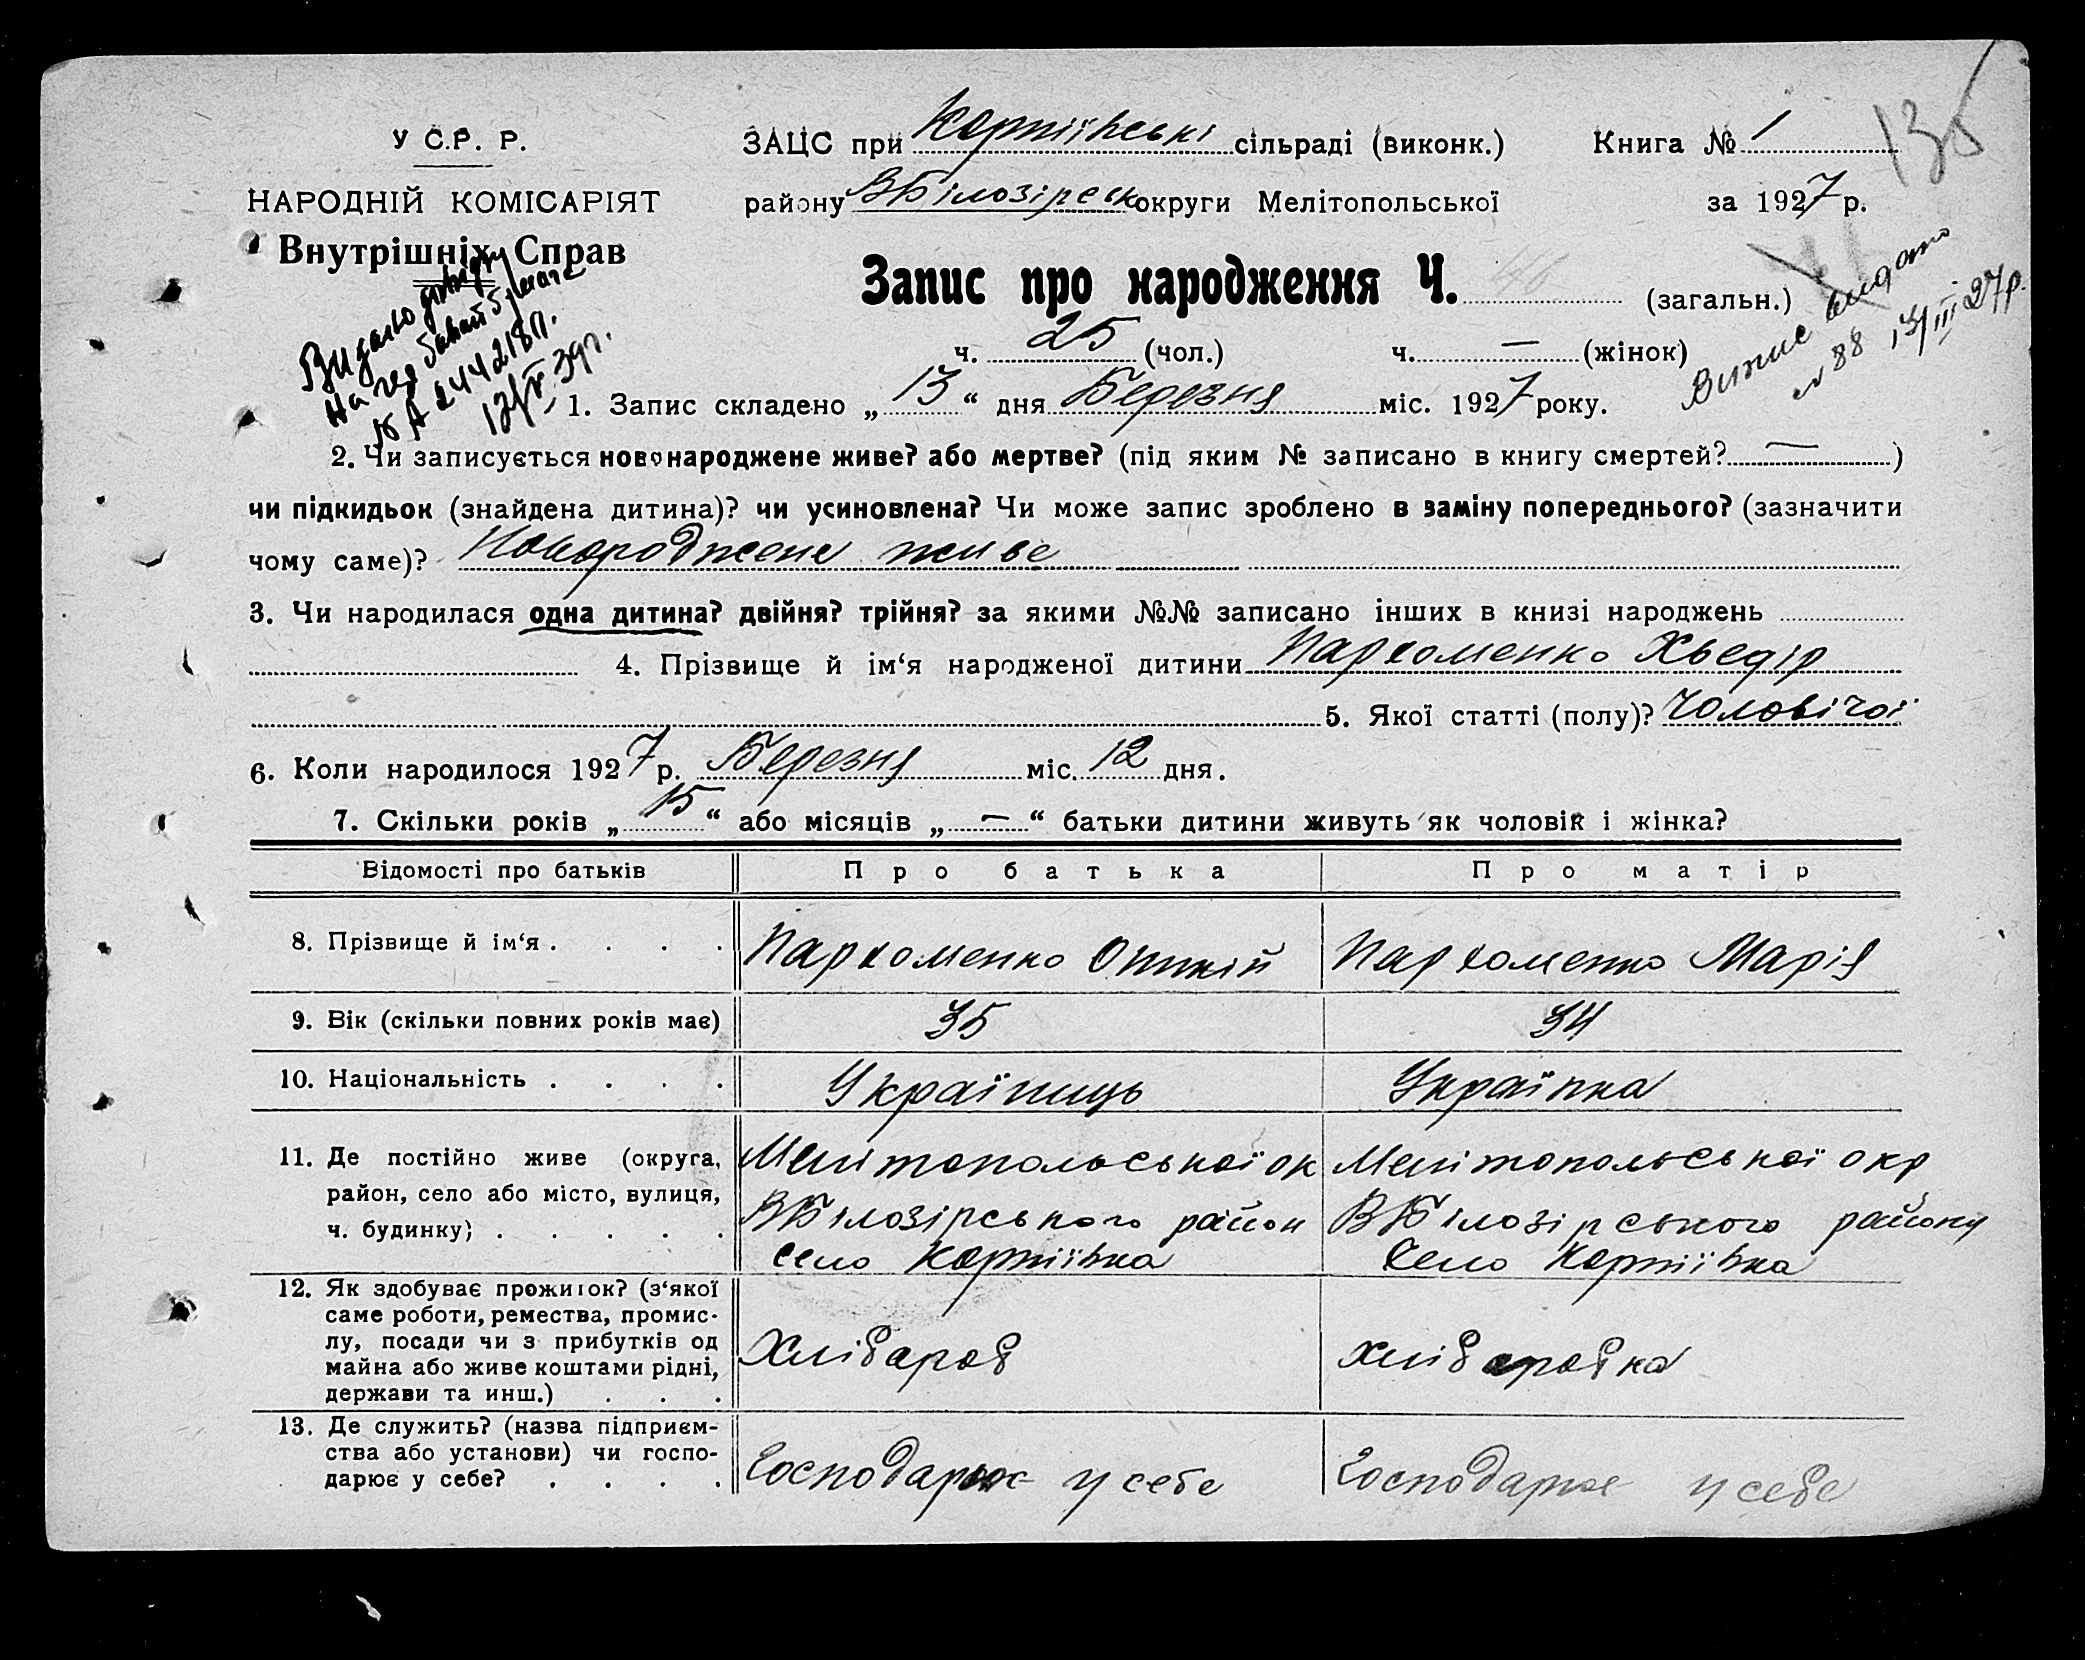 У С.Р. Р.
НАРОДНІЙ КОМІСАРІЯТ
Внутрішніх Справ
ЗАЦС при Корніївські сільраді (виконк.)
Книга № 1
135
району ВБілозірськ округи Мелітопольської
за 1927 р.
Запис про народження Ч. 46 (загальн.)
ч. 25 (чол.) ч. — (жінок)
Видано
№ А 244218 п.
Випис видано
№ 88 13/III 27р.
1. Запис складено „ 13 “ дня Березня міс. 1927 року.
2. Чи записується новонароджене живе? або мертве? (під яким № записано в книгу смертей? — )
чи підкидьок (знайдена дитина)? чи усиновлена? Чи може запис зроблено в заміну попереднього? (зазначити
чому саме)? Новороджене живе
3. Чи народилася одна дитина? двійня? трійня? за якими №№ записано інших в книзі народжень
4. Прізвище й ім‘я народженої дитини Пархоменко Хведір
5. Якої статті (полу)? Чоловічої
6. Коли народилося 1927 р. Березня міс. 12 дня.
7. Скільки років „ 15 “ або місяців „ — “ батьки дитини живуть як чоловік і жінка?
Відомості про батьків Про батька Про матір
8. Прізвище й ім‘я . . . . Пархоменко Пархоменко Марія
9. Вік (скільки повних років має) 35 34
10. Національність . . . . Україниць Українка
11. Де постійно живе (округа, Мелітопольської ок Мелітопольської окр
район, село або місто, вулиця, ВБілозірського район ВБілозірського району
ч. будинку) . . . . . село Корніївка село Корніївка
12. Як здобуває прожиток? (з‘якої
саме роботи, ремества, промис-
лу, посади чи з прибутків од
майна або живе коштами рідні, Хлібароб хлібаробка
держави та инш.) . . .
13. Де служить? (назва підприєм-
ства або установи) чи госпо-
дарює у себе? . . . . Господарює у себе Господарює у себе